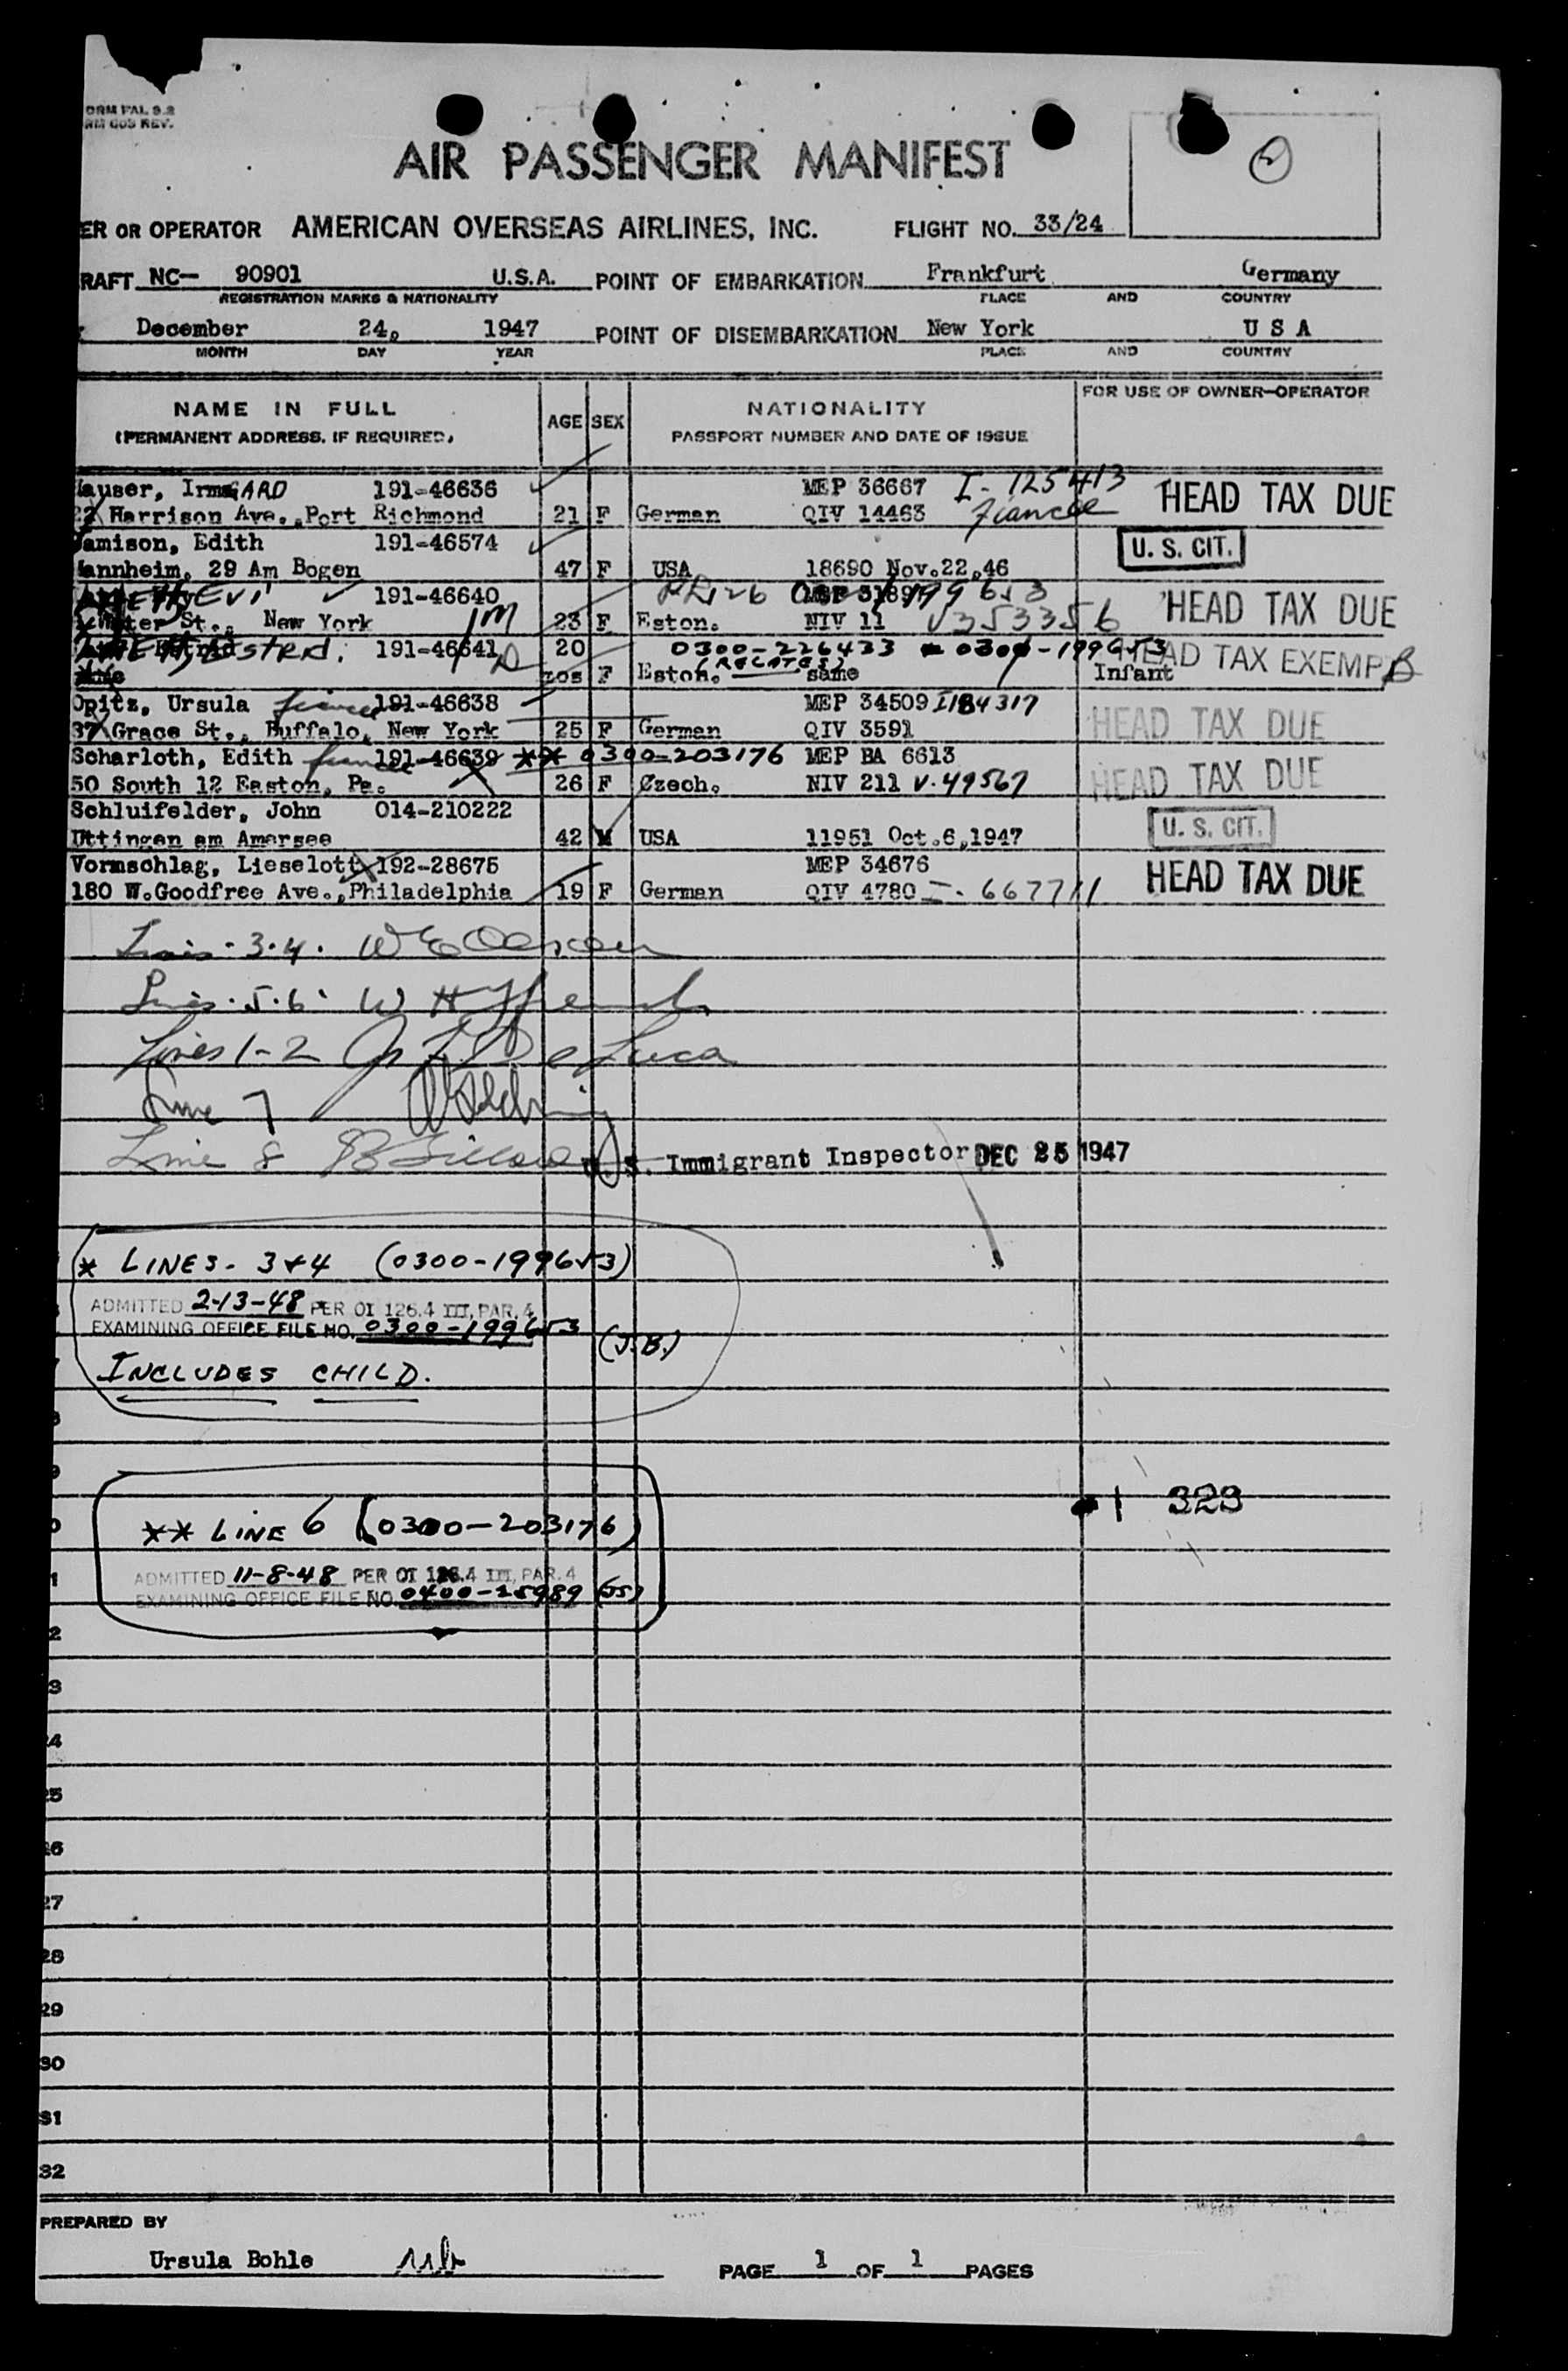 ORM PAL 9.2
RM 605 REV.
2
AIR PASSENGER MANIFEST
ER OR OPERATOR AMERICAN OVERSEAS AIRLINES, INC. FLIGHT NO. 33/24
RAFT NC- 90901 U.S.A. POINT OF EMBARKATION Frankfurt Germany
REGISTRATION MARKS & NATIONALITY PLACE AND COUNTRY
December 24, 1947 POINT OF DISEMBARKATION New York U S A
MONTH DAY YEAR PLACE AND COUNTRY
NAME IN FULL AGE SEX NATIONALITY FOR USE OF OWNER-OPERATOR
(PERMANENT ADDRESS, IF REQUIRED) PASSPORT NUMBER AND DATE OF ISSUE
auser, IrmGARD 191-46636 MEP 36667 I-125413 HEAD TAX DUE
22 Harrison Ave., Port Richmond 21 F German QIV 14463 Fiancee
amison, Edith 191-46574 U. S. CIT.
annheim, 29 Am Bogen 47 F USA 18690 Nov.22,46
Evi 191-46640 HEAD TAX DUE
St., New York 1M 23 F Eston. NIV 11 V353356
Estrid. 191-46641 20 0300-226433 0300-199653 HEAD TAX EXEMPT
mos F Eston. (RELATES) same Infant
Opitz, Ursula fiancee 191-46638 MEP 34509 I184317
37 Grace St., Buffalo, New York 25 F German QIV 3591 HEAD TAX DUE
Scharloth, Edith fiancee 191-46639 ** 0300-203176 MEP BA 6613
50 South 12 Easton, Pa. 26 F Czech. NIV 211 V-49567 HEAD TAX DUE
Schluifelder, John 014-210222 U. S. CIT.
Uttingen am Amersee 42 M USA 11951 Oct.6,1947
Vormschlag, Lieselott 192-28675 MEP 34676 HEAD TAX DUE
180 W.Goodfree Ave., Philadelphia 19 F German QIV 4780 I-667711
Lines 3-4.
Lines 5-6.
Lines 1-2 De Luca
Line 7
Line 8 U. S. Immigrant Inspector DEC 25 1947
* LINES- 3+4 (0300-199653)
ADMITTED 2-13-48 PER OI 126.4 III, PAR. 4
EXAMINING OFFICE FILE NO. 0300-199653 (J.B.)
INCLUDES CHILD.
1 323
** LINE 6 (0300-203176)
ADMITTED 11-8-48 PER OI 126.4 III, PAR. 4
EXAMINING OFFICE FILE NO. 0400-25989 (JS)
2
3
4
25
26
27
28
29
30
31
32
PREPARED BY
Ursula Bohle ub
PAGE 1 OF 1 PAGES